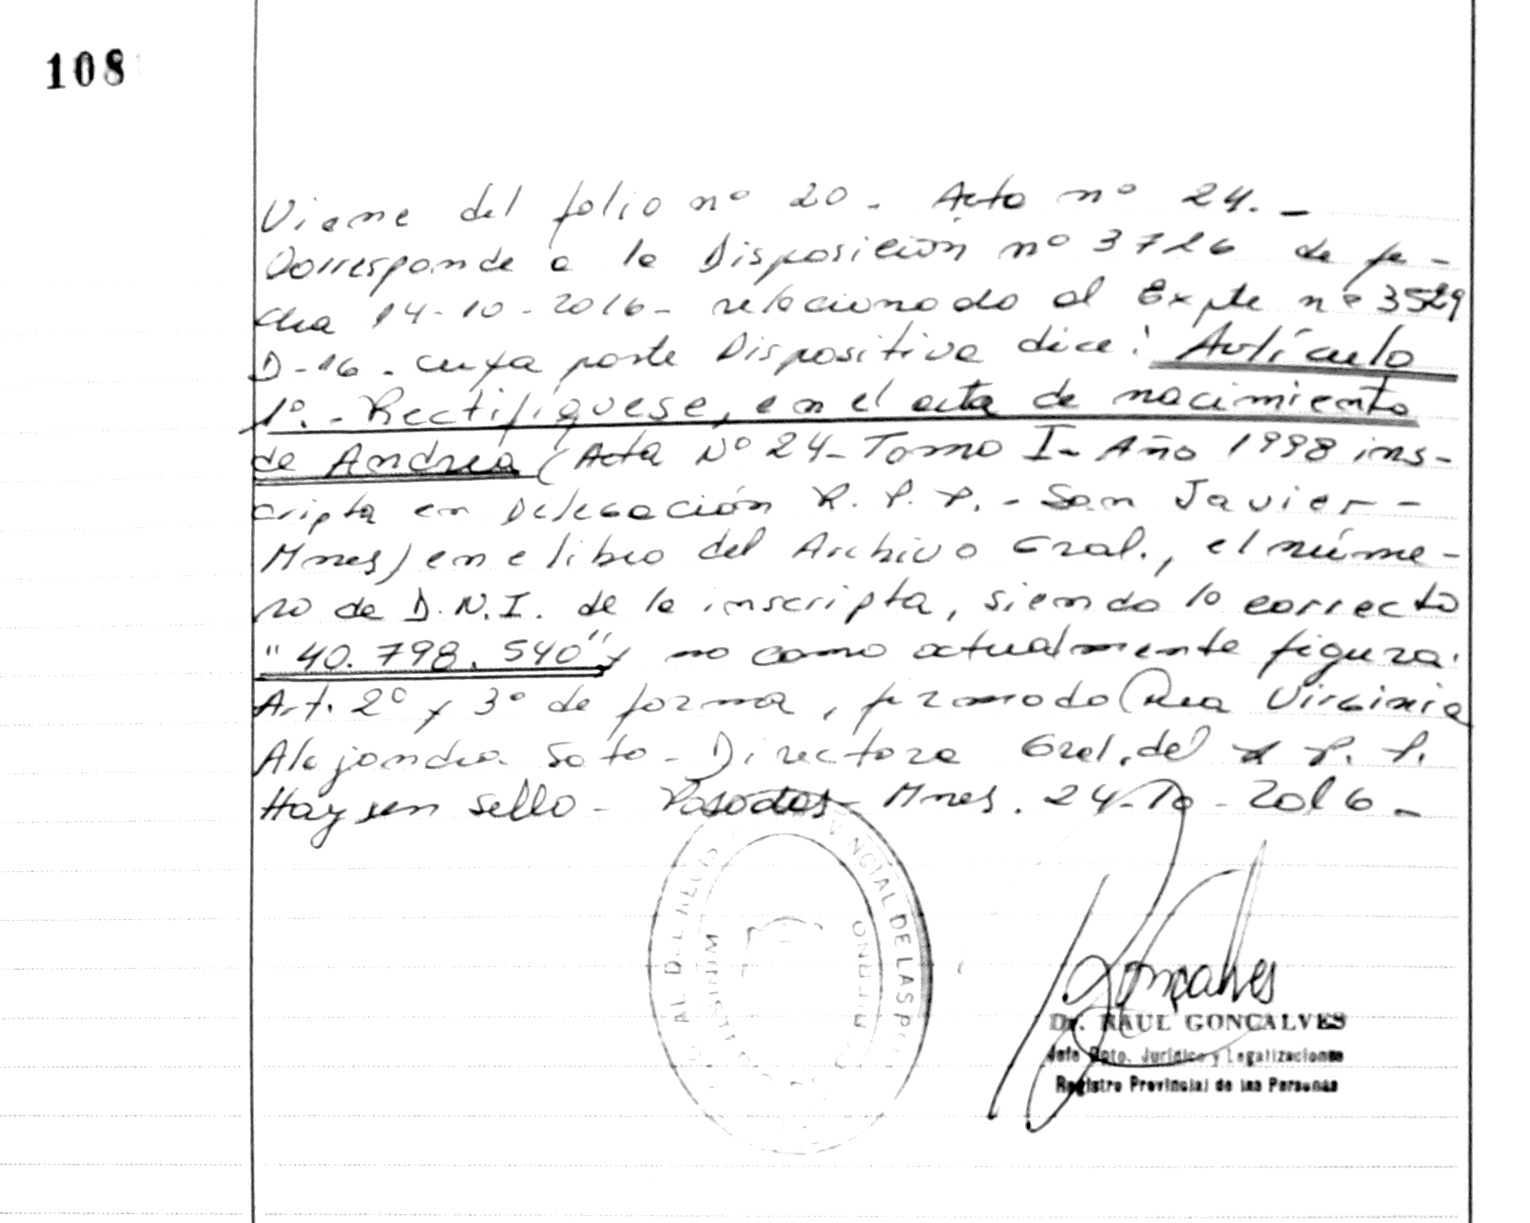 108
Viene del folio nº 20 - Acta nº 24. -
Corresponde a la Disposición nº 3726 de fe-
cha 14-10-2016 - relacionado al Expte nº 3529
D-16 - cuya parte Dispositiva dice: Artículo
1º. - Rectifíquese, en el acta de nacimiento
de Andrea (Acta Nº 24 - Tomo I - Año 1998 ins-
cripta en Delegación R. P. P. - San Javier -
Mnes) en el libro del Archivo Gral., el núme-
ro de D.N.I. de la inscripta, siendo lo correcto
"40.798.540" y no como actualmente figura.
Art. 2º y 3º de forma, firmado Dra Virginia
Alejandra Soto - Directora Gral. del R. P. P.
Hay un sello - Posadas - Mnes. 24-10-2016 -
VINCIAL DE LAS P
Gonçalves
Dr. RAUL GONÇALVES
Jefe Dpto. Jurídico y Legalizaciones
Registro Provincial de las Personas